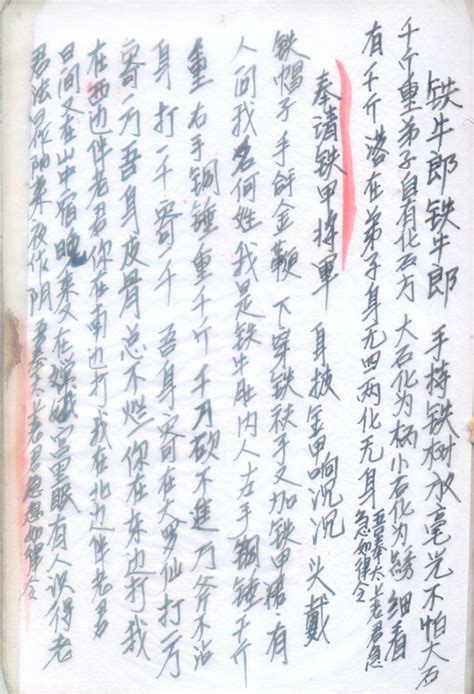 铁牛郎铁牛郎 手持铁树水毫光不怕大石
千斤重弟子自有化石方 大石化为柄小石化为綉 细看
有千斤落在弟子身无四两化无身 吾奉太上老君急急如律令
奉请铁甲将军 身披金甲响沉沉 头戴
铁帽子手舒金鞭 下穿铁袂子又加铁甲裙 有
人问我名何姓 我是铁牛肚内人左手铜锤千斤
重右手铜锤重千斤 千刀砍不進万斧不沾
身打一千寄一千 吾身寄在大罗仙打一万
寄一万吾身皮骨总不烂你在东边打我
在西边伴老君你在南边打我在北边伴老君
日间又在山中宿 晚来又在嫦娥宮里眠有人识得老
君法 日作阳来夜作阴 吾奉太上老君急急如律令